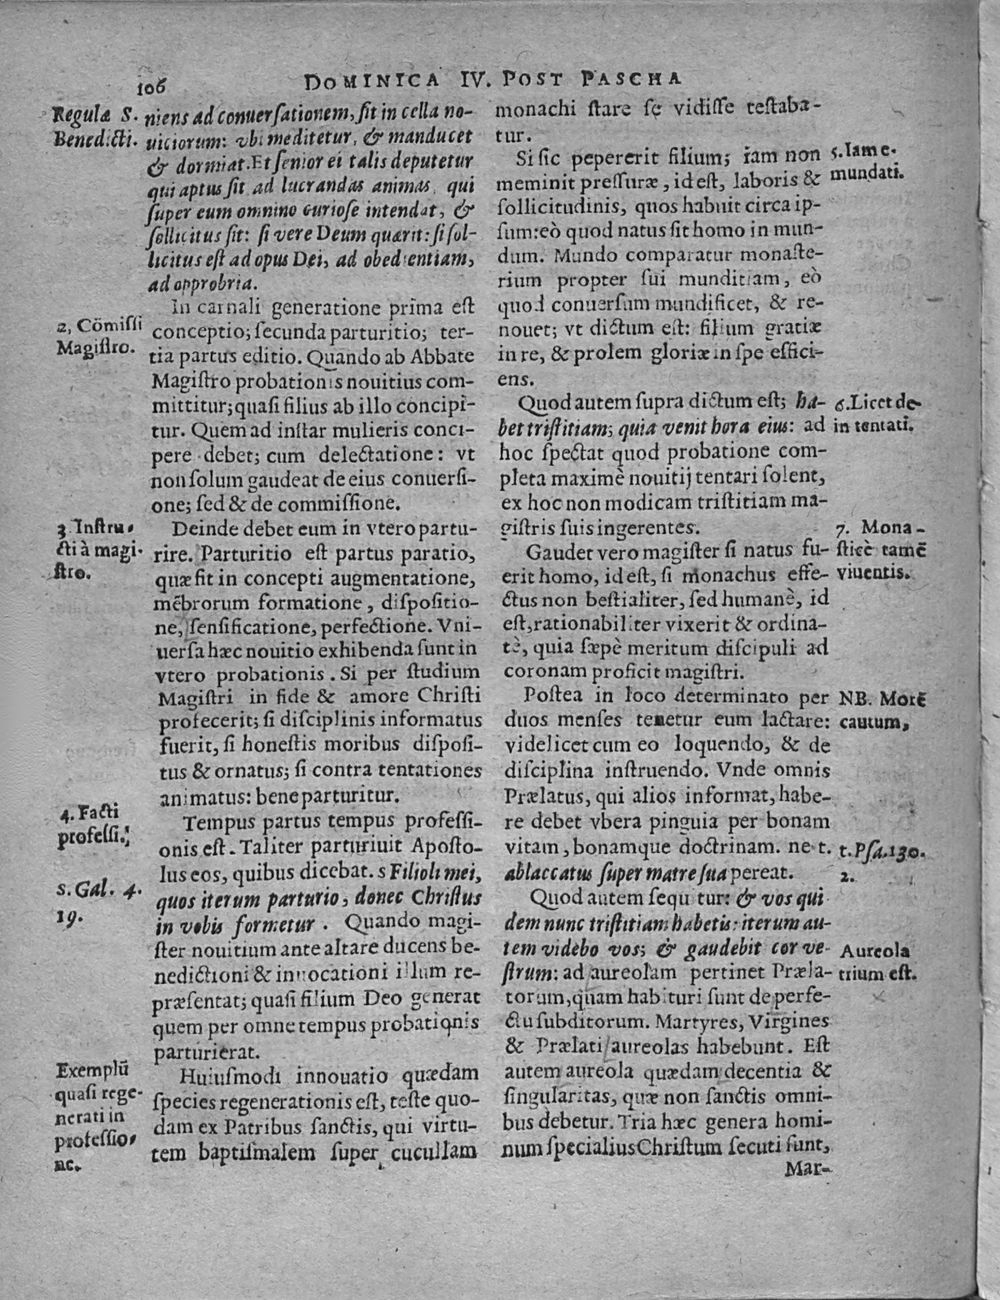 106
DOMINICA IV. POST PASCHA
Regulæ S.
Benedicti.
niens ad conuerſationem, ſit in cella no-
uiciorum: vbi meditetur, & manducet
& dormiat. Et ſenior ei talis deputetur
qui aptus ſit ad lucrandas animas, qui
ſuper eum omnino curioſe intendat, &
ſollicitus ſit: ſi vere Deum quærit: ſi ſol-
licitus eſt ad opus Dei, ad obedientiam,
ad opprobria.
2, Cōmiſſi
Magiſtro.
In carnali generatione prima eſt
conceptio; ſecunda parturitio; ter-
tia partus editio. Quando ab Abbate
Magiſtro probationis nouitius com-
mittitur; quaſi filius ab illo concipi-
tur. Quem ad inſtar mulieris conci-
pere debet; cum delectatione: vt
non ſolum gaudeat de eius conuerſi-
one; ſed & de commiſſione.
3 Inſtru-
cti à magi-
ſtro.
Deinde debet eum in vtero partu-
rire. Parturitio eſt partus paratio,
quæ fit in concepti augmentatione,
mēbrorum formatione, diſpoſitio-
ne, ſenſificatione, perfectione. Vni-
uerſa hæc nouitio exhibenda ſunt in
vtero probationis. Si per ſtudium
Magiſtri in fide & amore Chriſti
profecerit; ſi diſciplinis informatus
fuerit, ſi honeſtis moribus diſpoſi-
tus & ornatus; ſi contra tentationes
animatus: bene parturitur.
4. Facti
profeſſi.
Tempus partus tempus profeſſi-
onis eſt. Taliter parturiuit Apoſto-
lus eos, quibus dicebat. s Filioli mei,
quos iterum parturio, donec Chriſtus
in vobis formetur. Quando magi-
s. Gal. 4.
19.
ſter nouitium ante altare ducens be-
nedictioni & inuocationi illum re-
præſentat; quaſi filium Deo generat
quem per omne tempus probationis
parturierat.
Exemplū
quaſi rege-
nerati in
profeſſio-
ne.
Huiuſmodi innouatio quædam
ſpecies regenerationis eſt, teſte quo-
dam ex Patribus ſanctis, qui virtu-
tem baptiſmalem ſuper cucullam
monachi ſtare ſe vidiſſe teſtaba-
tur.
5. Iam e-
mundati.
Si ſic pepererit filium; iam non
meminit preſſuræ, id eſt, laboris &
ſollicitudinis, quos habuit circa ip-
ſum: eò quod natus ſit homo in mun-
dum. Mundo comparatur monaſte-
rium propter ſui munditiam, eò
quod conuerſum mundificet, & re-
nouet; vt dictum eſt: filium gratiæ
in re, & prolem gloriæ in ſpe effici-
ens.
6. Licet de-
in tentati.
Quod autem ſupra dictum eſt; ha-
bet triſtitiam; quia venit hora eius: ad
hoc ſpectat quod probatione com-
pleta maximè nouitij tentari ſolent,
ex hoc non modicam triſtitiam ma-
giſtris ſuis ingerentes.
7. Mona-
ſticè tamē
viuentis.
Gaudet vero magiſter ſi natus fu-
erit homo, id eſt, ſi monachus effe-
ctus non beſtialiter, ſed humanè, id
eſt, rationabiliter vixerit & ordina-
tè, quia ſæpè meritum diſcipuli ad
coronam proficit magiſtri.
NB. Morē
cautum,
Poſtea in loco determinato per
duos menſes tenetur eum lactare:
videlicet cum eo loquendo, & de
diſciplina inſtruendo. Vnde omnis
Prælatus, qui alios informat, habe-
re debet vbera pinguia per bonam
vitam, bonamque doctrinam. ne t.
ablactatus ſuper matre ſua pereat.
t. Pſa. 130.
2.
Quod autem ſequitur: & vos qui
dem nunc triſtitiam habetis: iterum au-
tem videbo vos; & gaudebit cor ve-
ſtrum: ad aureolam pertinet Præla-
Aureola
trium eſt.
torum, quam habituri ſunt de perfe-
ctu ſubditorum. Martyres, Virgines
& Prælati aureolas habebunt. Eſt
autem aureola quædam decentia &
ſingularitas, quæ non ſanctis omni-
bus debetur. Tria hæc genera homi-
num ſpecialius Chriſtum ſecuti ſunt,
Mar-